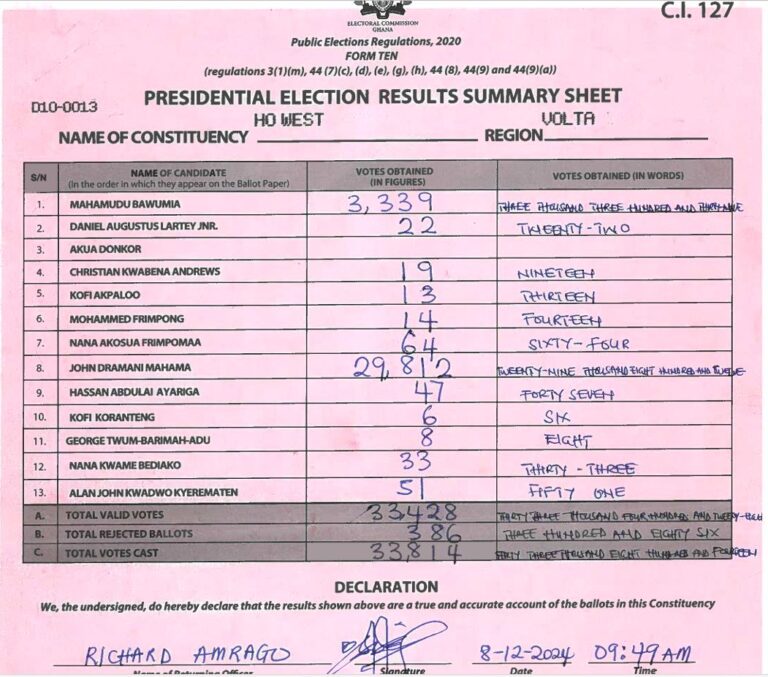 C.I. 127
ELECTORAL COMMISSION
GHANA
Public Elections Regulations, 2020
FORM TEN
(regulations 3(1)(m), 44 (7)(c), (d), (e), (g), (h), 44 (8), 44(9) and 44(9)(a))
PRESIDENTIAL ELECTION RESULTS SUMMARY SHEET
D10-0013
NAME OF CONSTITUENCY HO WEST REGION VOLTA
S/N NAME OF CANDIDATE (In the order in which they appear on the Ballot Paper) VOTES OBTAINED (IN FIGURES) VOTES OBTAINED (IN WORDS)
1. MAHAMUDU BAWUMIA 3,339 THREE THOUSAND THREE HUNDRED AND THIRTY-NINE
2. DANIEL AUGUSTUS LARTEY JNR. 22 TWENTY-TWO
3. AKUA DONKOR
4. CHRISTIAN KWABENA ANDREWS 19 NINETEEN
5. KOFI AKPALOO 13 THIRTEEN
6. MOHAMMED FRIMPONG 14 FOURTEEN
7. NANA AKOSUA FRIMPOMAA 64 SIXTY-FOUR
8. JOHN DRAMANI MAHAMA 29,812 TWENTY-NINE THOUSAND EIGHT HUNDRED AND TWELVE
9. HASSAN ABDULAI AYARIGA 47 FORTY SEVEN
10. KOFI KORANTENG 6 SIX
11. GEORGE TWUM-BARIMAH-ADU 8 EIGHT
12. NANA KWAME BEDIAKO 33 THIRTY-THREE
13. ALAN JOHN KWADWO KYEREMATEN 51 FIFTY ONE
A. TOTAL VALID VOTES 33,428 THIRTY THREE THOUSAND FOUR HUNDRED AND TWENTY-EIGHT
B. TOTAL REJECTED BALLOTS 386 THREE HUNDRED AND EIGHTY SIX
C. TOTAL VOTES CAST 33,814 THIRTY THREE THOUSAND EIGHT HUNDRED AND FOURTEEN
DECLARATION
We, the undersigned, do hereby declare that the results shown above are a true and accurate account of the ballots in this Constituency
RICHARD AMRAGO 8-12-2024 09:49AM
Name of Returning Officer Signature Date Time